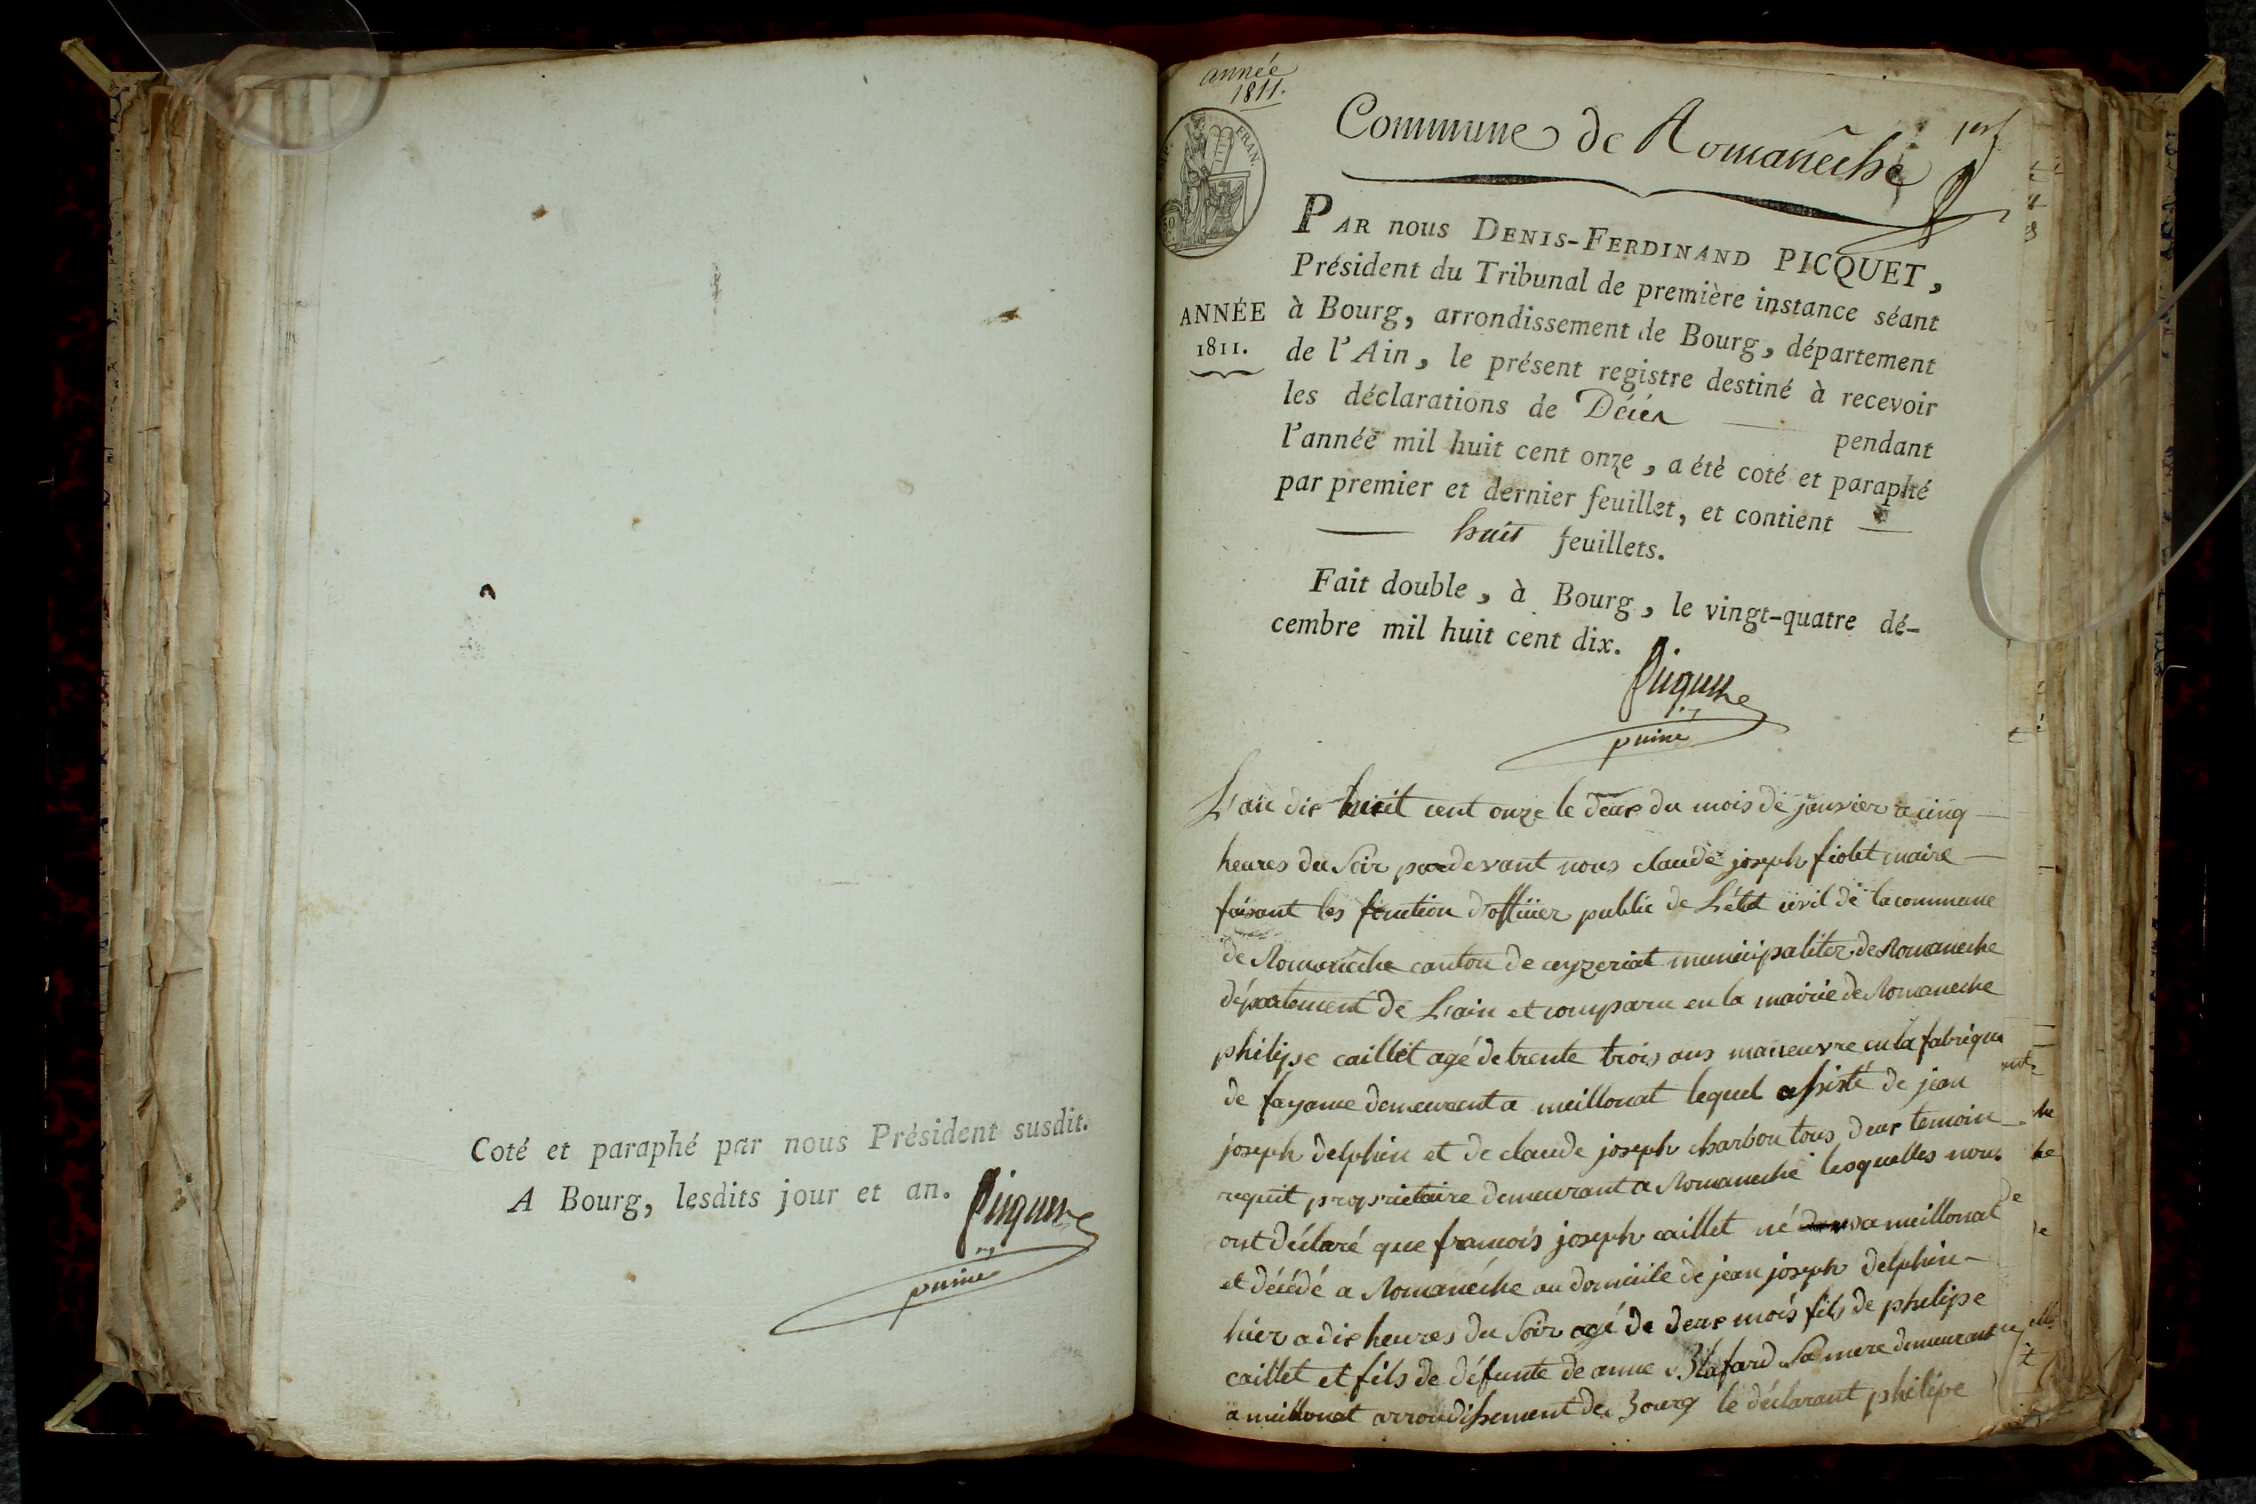 Coté et paraphé par nous Président susdit.
A Bourg, lesdits jour et an.
Picquet
puiné
année
1811.
Commune de Romanêche
1er
FRAN.
PAR nous DENIS-FERDINAND PICQUET,
Président du Tribunal de première instance séant
ANNÉE
1811.
à Bourg, arrondissement de Bourg, département
de l'Ain, le présent registre destiné à recevoir
les déclarations de Décès pendant
l'année mil huit cent onze, a été coté et paraphé
par premier et dernier feuillet, et contient
huit feuillets.
Fait double, à Bourg, le vingt-quatre dé-
cembre mil huit cent dix.
Picquet
puiné
L'an dix huit cent onze le deux du mois de janvier a cinq
heures du Soir pardevant nous claude joseph fiolet maire
faisant les fonction d'officier public de L'état civil de la commune
de Romanêche canton de ceyzeriat municipaliter de Romaneche
département de L'ain et comparu en la mairie de Romaneche
philipe caillet agé de trente trois ans maneuvre en la fabrique
de fayance demeurent a meillonat lequel assisté de jean
joseph delphin et de claude joseph charbon tous deux temoin
requit proprietaire demeurant a Romaneche lesquelles nous
ont déclaré que francois joseph caillet né a meillonat
et décédé a Romanéche au domicile de jean joseph delphin
hier a dix heures du Soir agé de deux mois fils de philipe
caillet et fils de défunte de anne Blafard Sa mere demeurant
a meillonat arrondissement de Bourg le déclarant philipe